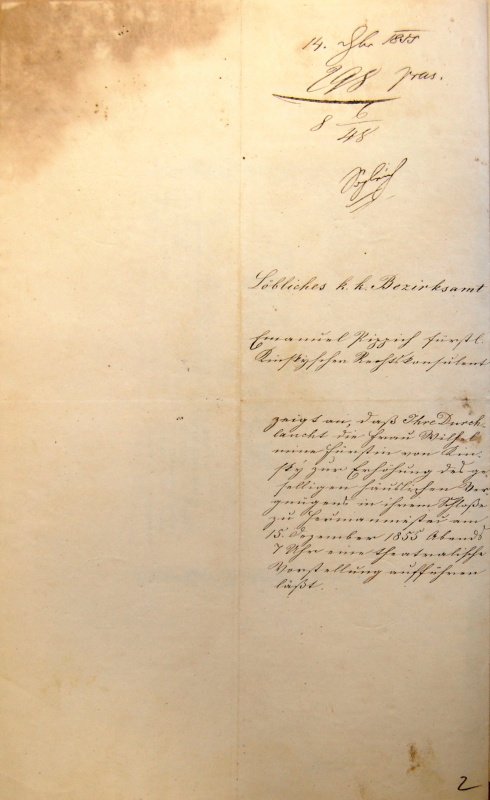 14. Xbr 1855
298 pras.
8 6/48
Löbliches k. k. Bezirksamt
Emanuel Pippich fürstl.
Kinskyschen Rechtskonsulent
zeigt an, daß Ihre Durch-
laucht die Frau Wilhel-
mine Fürstin von Kin-
sky zur Erhöhung des ge-
selligen häuslichen Ver-
gnügens in ihrem Schloße
zu Hermanmestec am
15. Dezember 1855 Abends
7 Uhr eine theatralische
Vorstellung aufführen
läßt.
2